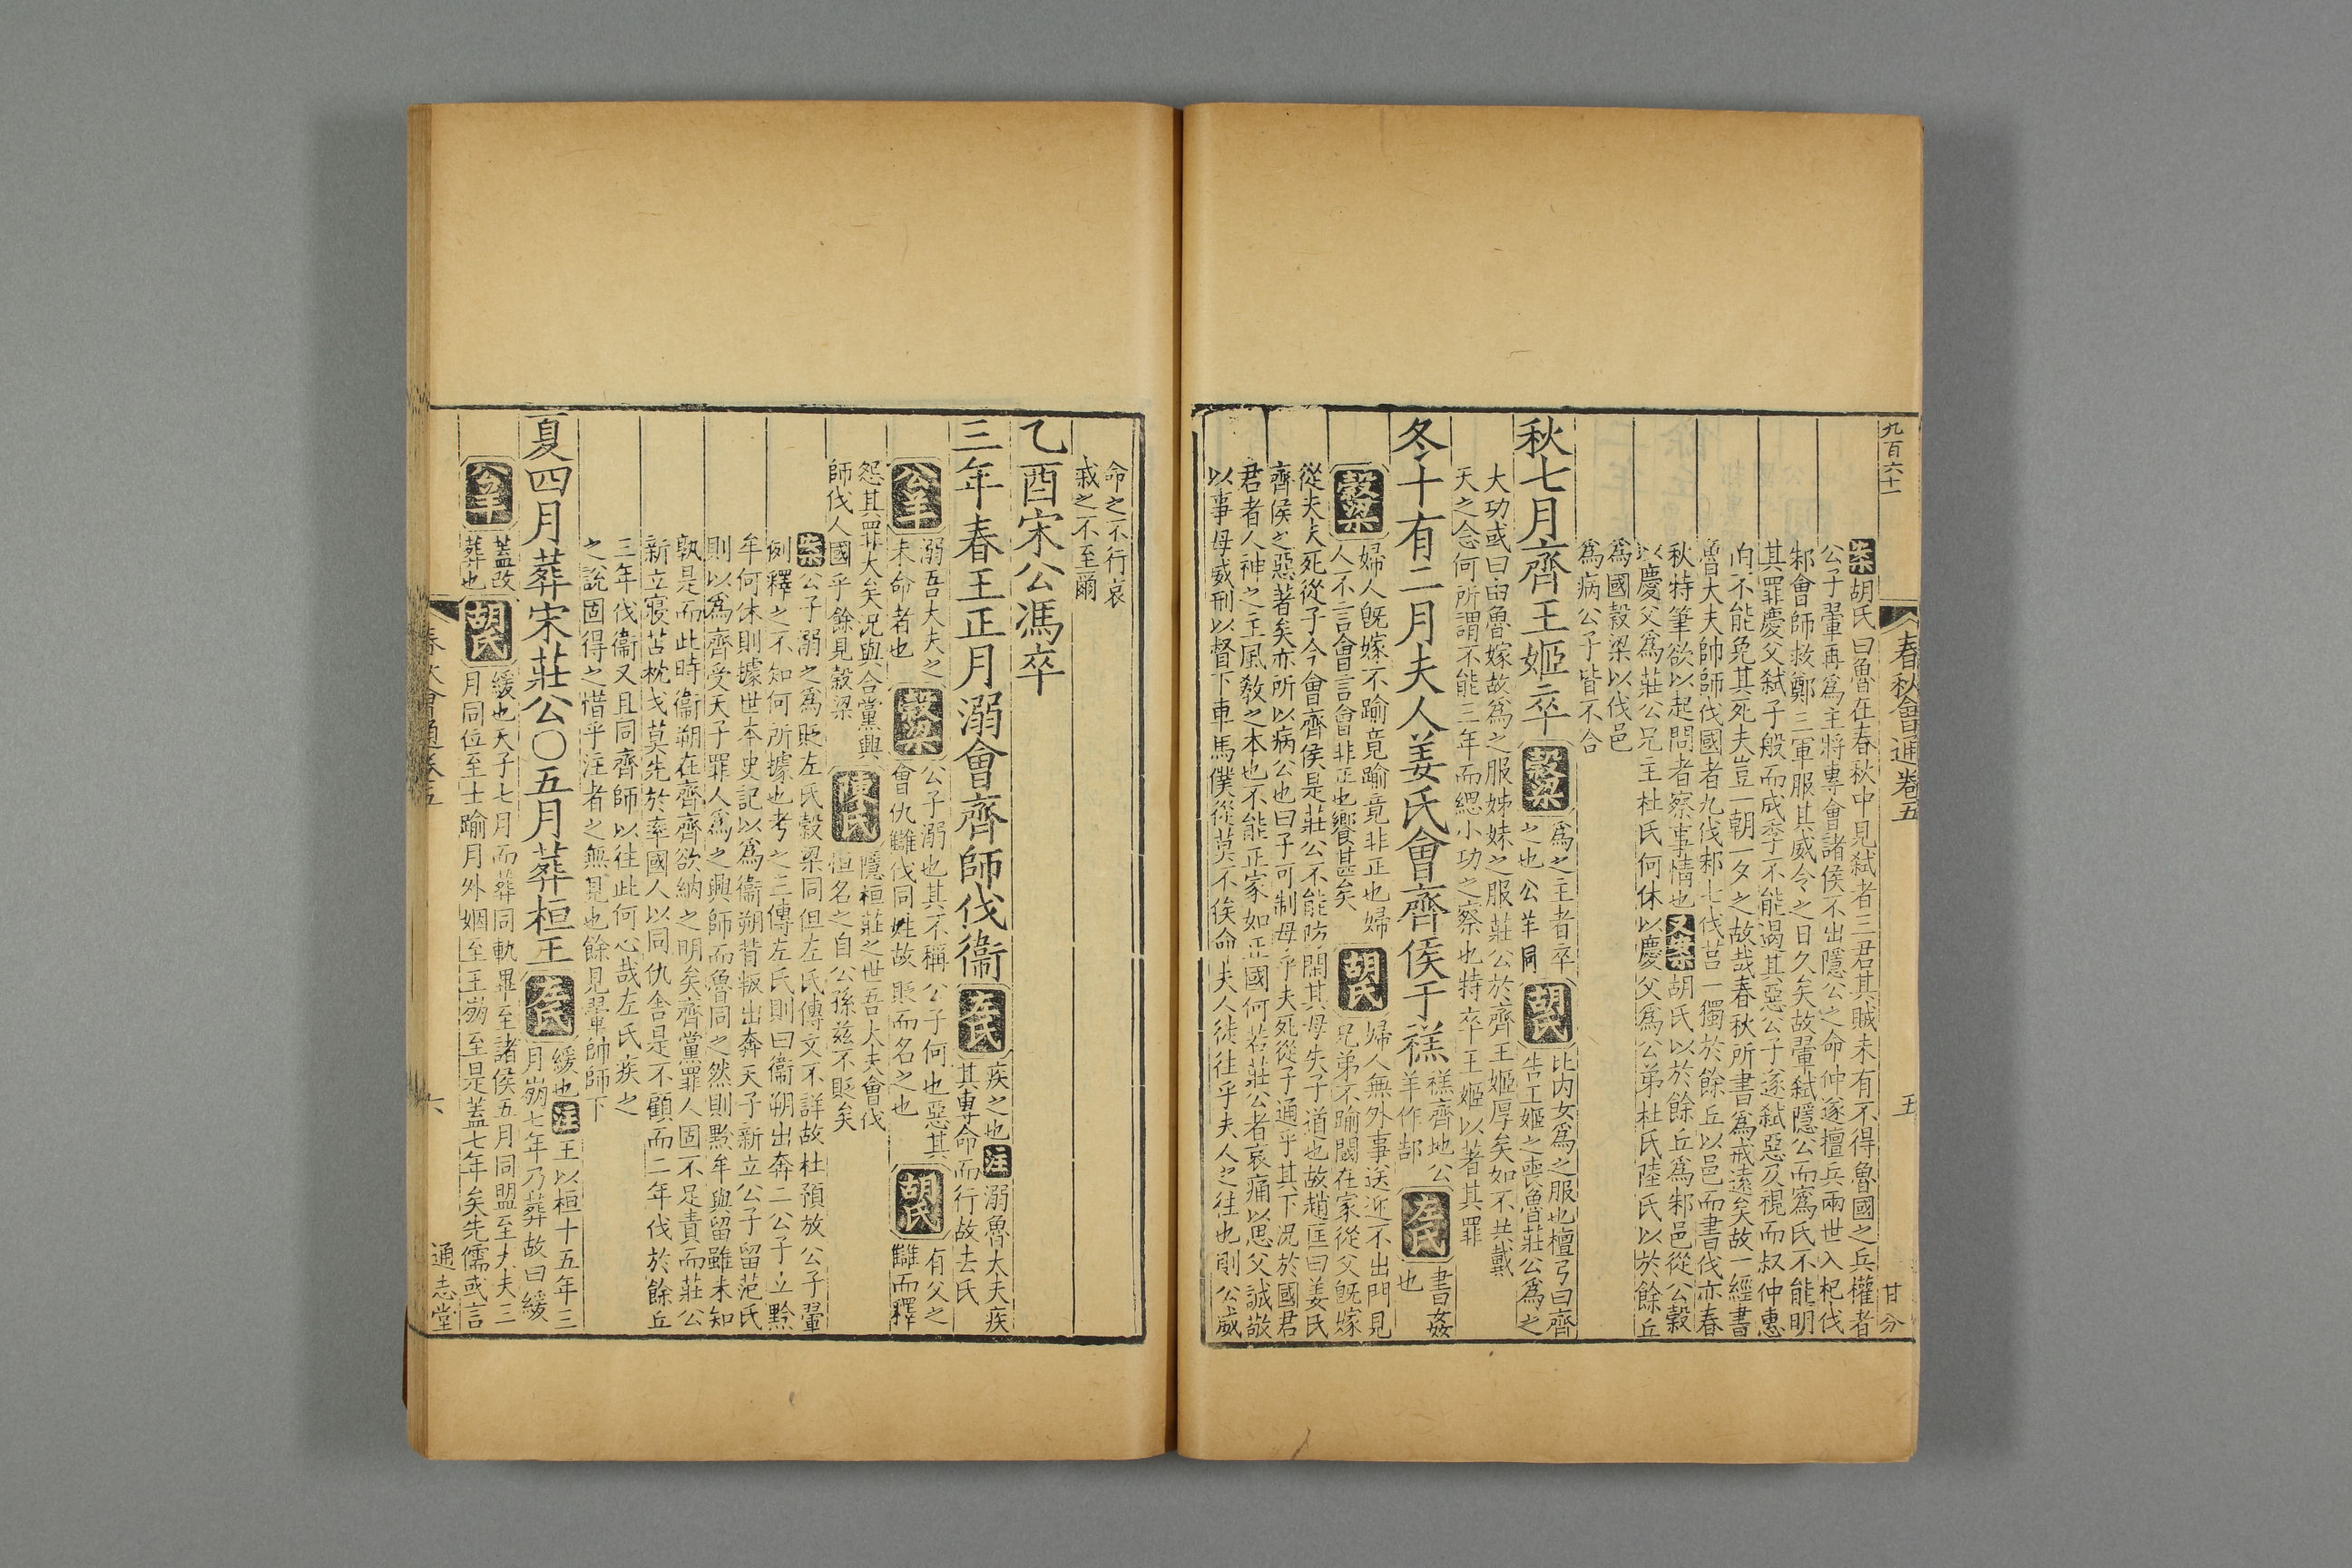 九百六十一
春秋會通卷五
五
甘分
案胡氏曰魯在春秋中見弑者三君其賊未有不得魯國之兵權者
公子翬再爲主將專會諸侯不出隱公之命仲遂擅兵兩世入杞伐
邾會師救鄭三軍服其威令之日久矣故翬弑隱公而寪氏不能明
其罪慶父弑子般而成季不能遏其惡公子遂弑惡及視而叔仲惠
伯不能免其死夫豈一朝一夕之故哉春秋所書爲戒遠矣故一經書
魯大夫帥師伐國者九伐邾七伐莒一獨於餘丘以邑而書伐亦春
秋特筆欲以起問者察事情也又案胡氏以於餘丘爲邾邑從公穀
以慶父爲莊公兄主杜氏何休以慶父爲公弟杜氏陸氏以於餘丘
爲國穀梁以伐邑
爲病公子皆不合
秋七月齊王姬卒穀梁爲之主者卒
之也公羊同胡氏比内女爲之服也檀弓曰齊
告王姬之喪魯莊公爲之
大功或曰由魯嫁故爲之服姊妹之服莊公於齊王姬厚矣如不共戴
天之念何所謂不能三年而緦小功之察也特卒王姬以著其罪
冬十有二月夫人姜氏會齊侯于禚禚齊地公
羊作郜左氏書姦
也
穀梁婦人旣嫁不踰竟踰竟非正也婦
人不言會言會非正也饗甚矣胡氏婦人無外事送迎不出門見
兄弟不踰閾在家從父旣嫁
從夫夫死從子今會齊侯是莊公不能防閑其母失子道也故趙匡曰姜氏
齊侯之惡著矣亦所以病公也曰子可制母乎夫死從子通乎其下況於國君
君者人神之主風敎之本也不能正家如正國何若莊公者哀痛以思父誠敬
以事母威刑以督下車馬僕從莫不俟命夫人徒往乎夫人之往也則公威
命之不行哀
戚之不至爾
乙酉宋公馮卒
三年春王正月溺會齊師伐衞左氏疾之也注溺魯大夫疾
其專命而行故去氏
公羊溺吾大夫之
未命者也穀梁公子溺也其不稱公子何也惡其
會仇讎伐同姓故貶而名之也胡氏有父之
讎而釋
怨其罪大矣況與合黨興
師伐人國乎餘見穀梁陳氏隱桓莊之世吾大夫會伐
恒名之自公孫兹不貶矣
案公子溺之爲貶左氏穀梁同但左氏傳文不詳故杜預放公子翬
例釋之不知何所據也考之三傳左氏則曰衞朔出奔二公子立黔
牟何休則據世本史記以爲衞朔背叛出奔天子新立公子留范氏
則以爲齊受天子罪人爲之興師而魯同之然則黔牟與留雖未知
孰是而此時衞朔在齊齊欲納之明矣齊黨罪人固不足責而莊公
新立寢苫枕戈莫先於率國人以同仇舍是不顧而二年伐於餘丘
三年伐衞又且同齊師以往此何心哉左氏疾之
之說固得之惜乎注者之無見也餘見翬帥師下
夏四月葬宋莊公〇五月葬桓王左氏緩也注王以桓十五年三
月崩七年乃葬故曰緩
公羊蓋改
葬也胡氏緩也天子七月而葬同軌畢至諸侯五月同盟至大夫三
月同位至士踰月外姻至王崩至是蓋七年矣先儒或言
春秋會通卷五
六
通志堂